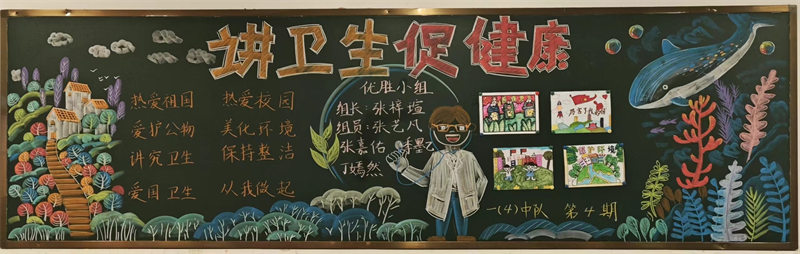 讲卫生促健康
热爱祖国 热爱校园
爱护公物 美化环境
讲究卫生 保持整洁
爱国卫生 从我做起
优胜小组
组长:张梓瑄
组员:张艺凡
张嘉佑 李墨乙
丁嫣然
一(4)中队 第4期